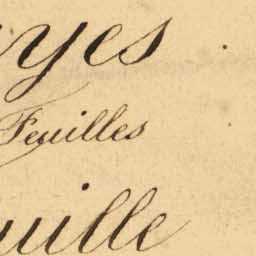 yes
Feuilles
uille